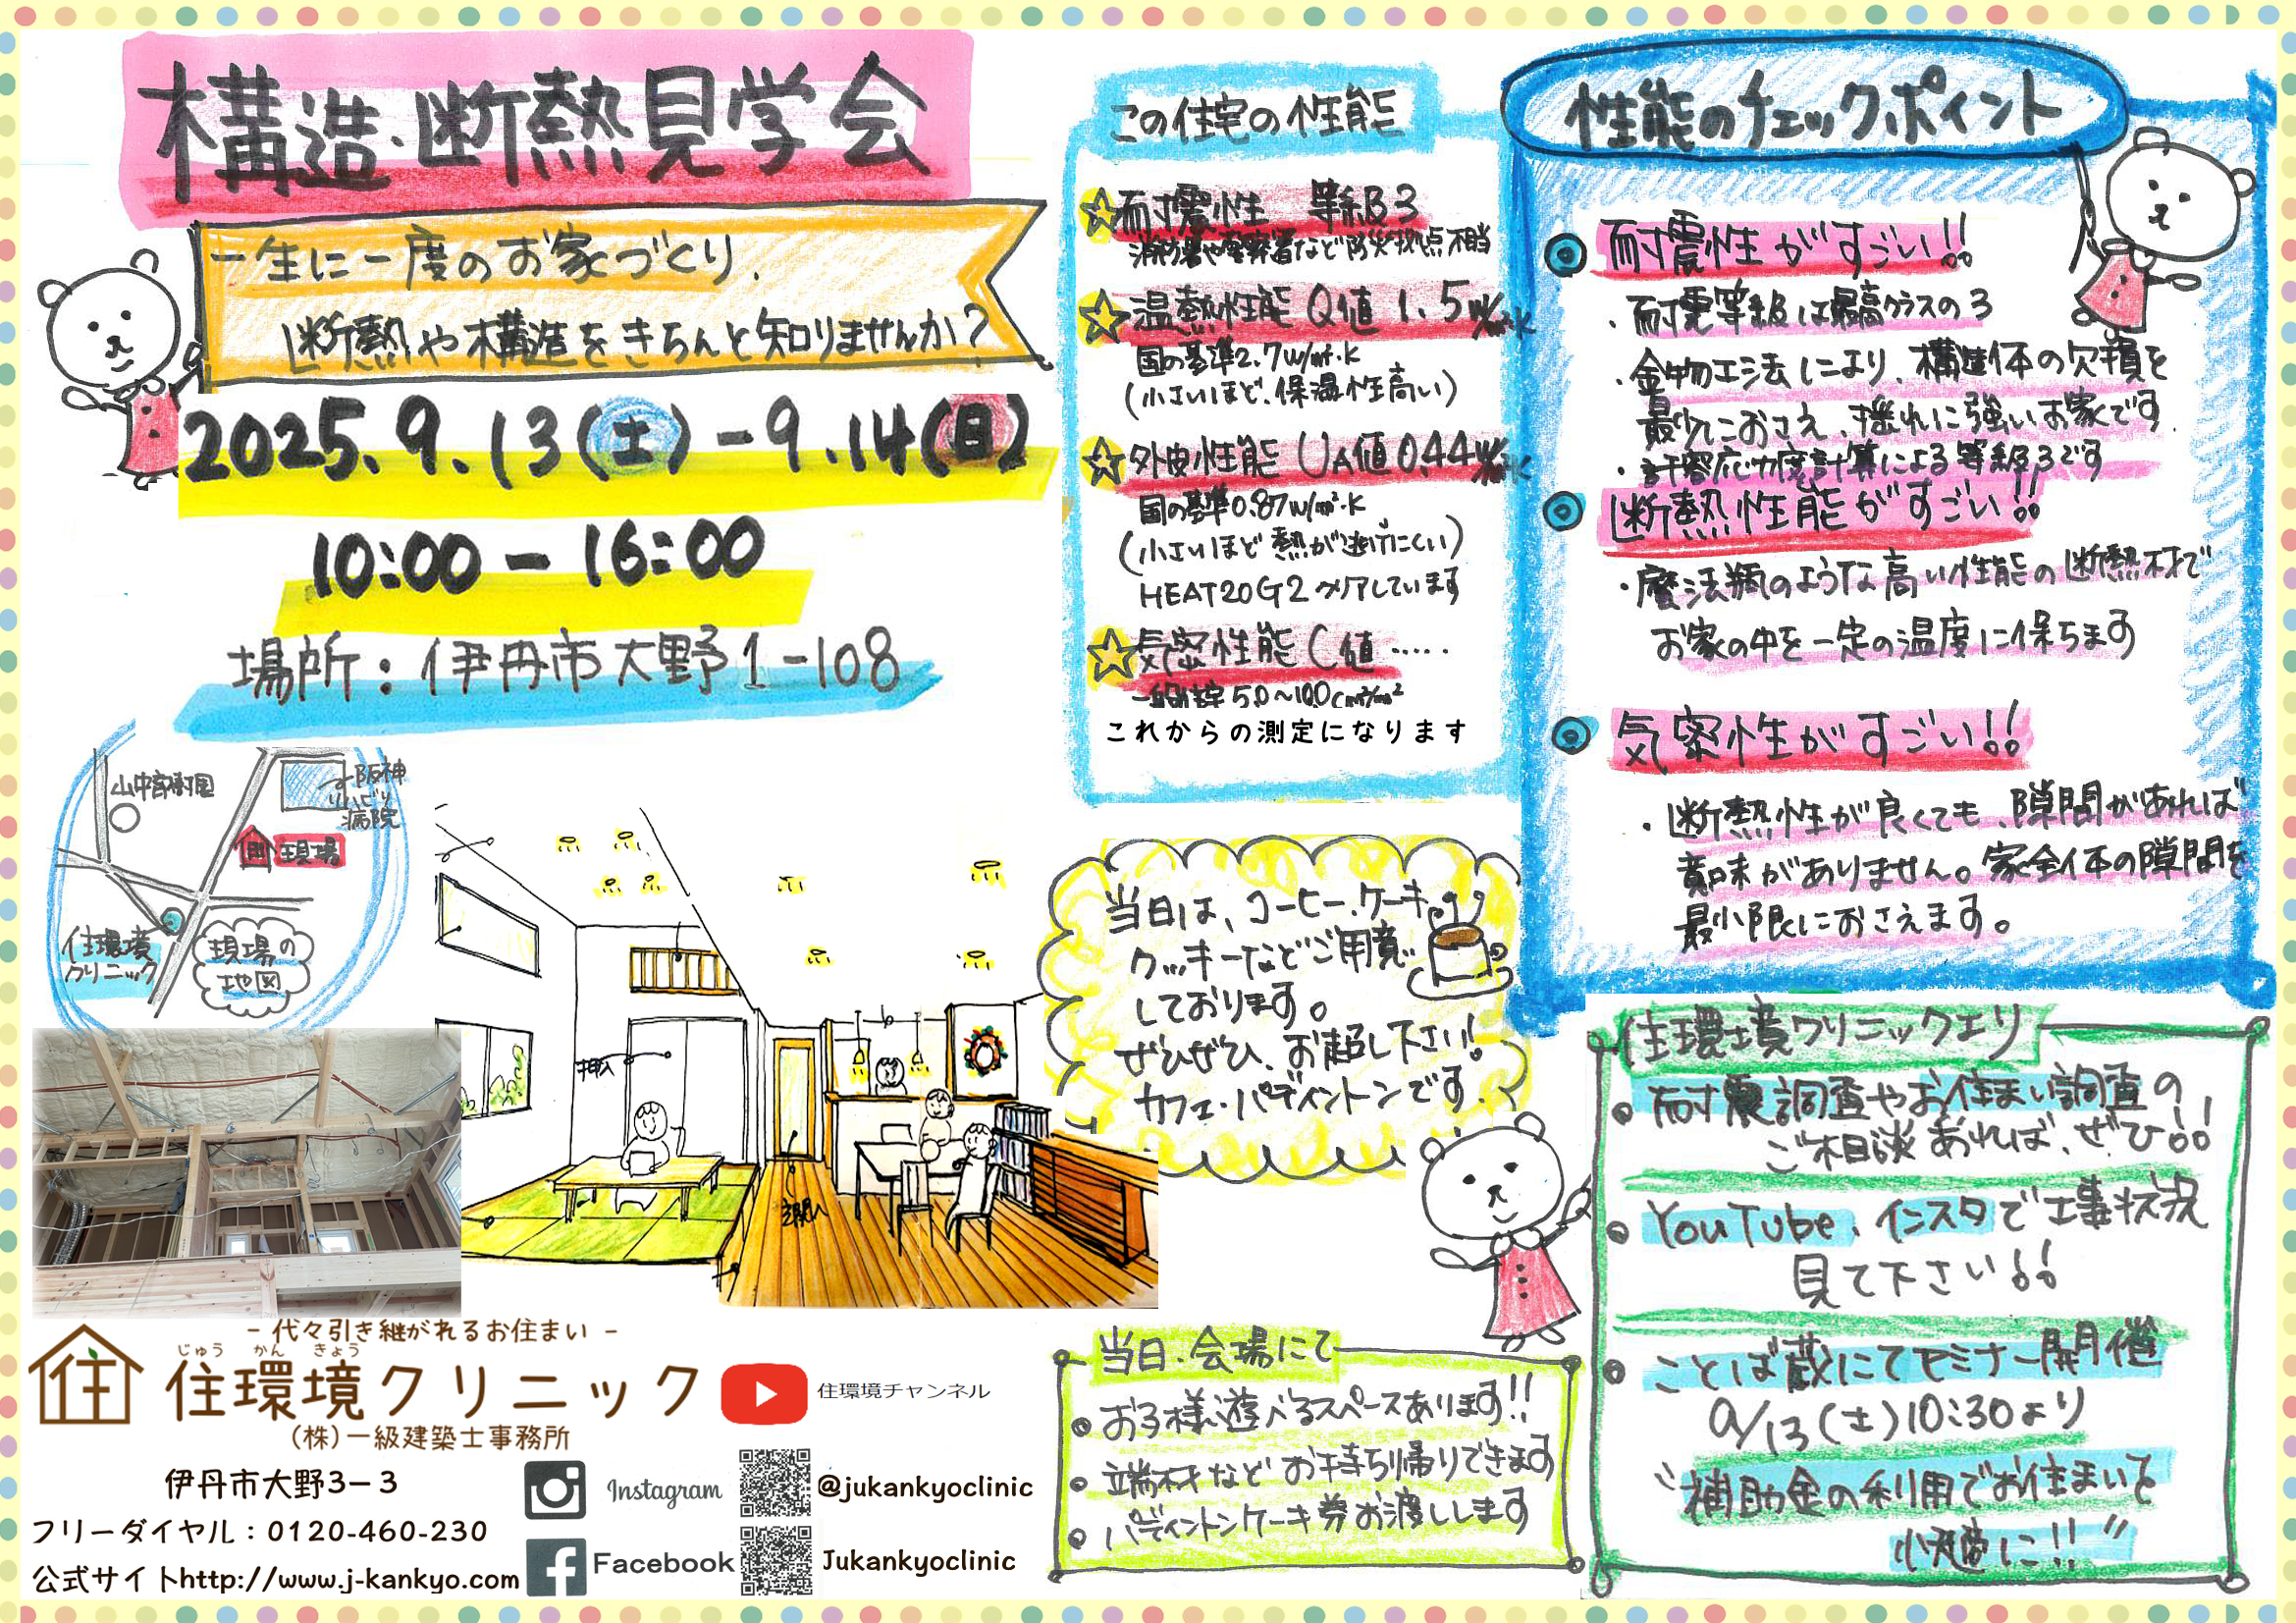 構造・断熱見学会
一生に一度のお家づくり、
断熱や構造をきちんと知りませんか?
2025.9.13(土)-9.14(日)
10:00-16:00
場所:伊丹市大野1-108
山中家樹園
阪神
リハビリ
病院
現場
住環境
クリニック
現場の
地図
この住宅の性能
☆耐震性 等級3
消防署や警察署など防火拠点相当
☆温熱性能 Q値 1.5W/㎡・K
国の基準2.7W/㎡・K
(小さいほど、保温性高い)
☆外皮性能 UA値0.44W/㎡・K
国の基準0.87W/㎡・K
(小さいほど熱が逃げにくい)
HEAT20G2クリアしています
☆気密性能 C値……
一般住宅5.0~10.0cm²/m²
これからの測定になります
性能のチェックポイント
耐震性がすごい!!
・耐震等級は最高クラスの3
・金物工法により、構造体の欠損を
最少におさえ、揺れに強いお家です
・許容応力度計算による等級3です
断熱性能がすごい!!
・魔法瓶のような高い性能の断熱材で
お家の中を一定の温度に保ちます
気密性がすごい!!
・断熱性が良くても、隙間があれば
意味がありません。家全体の隙間を
最小限におさえます。
当日は、コーヒー、ケーキ、
クッキーなどご用意
しております。
ぜひぜひ、お越し下さい!
カフェ・パディントンです。
押入
玄関へ
住環境クリニックより
耐震調査やお住まい調査の
ご相談あれば、ぜひ!!
YouTube、インスタで工事状況
見て下さい!!
ことば蔵にてセミナー開催
9/13(土)10:30より
〝補助金の利用でお住まいを
快適に!!〟
当日、会場にて
お子様遊べるスペースあります!!
端材などお持ち帰りできます
パディントンケーキ券お渡しします
- 代々引き継がれるお住まい -
じゅう かん きょう
住環境クリニック
(株)一級建築士事務所
住
住環境チャンネル
伊丹市大野3-3
フリーダイヤル:0120-460-230
公式サイトhttp://www.j-kankyo.com
Instagram
@jukankyoclinic
Facebook
Jukankyoclinic